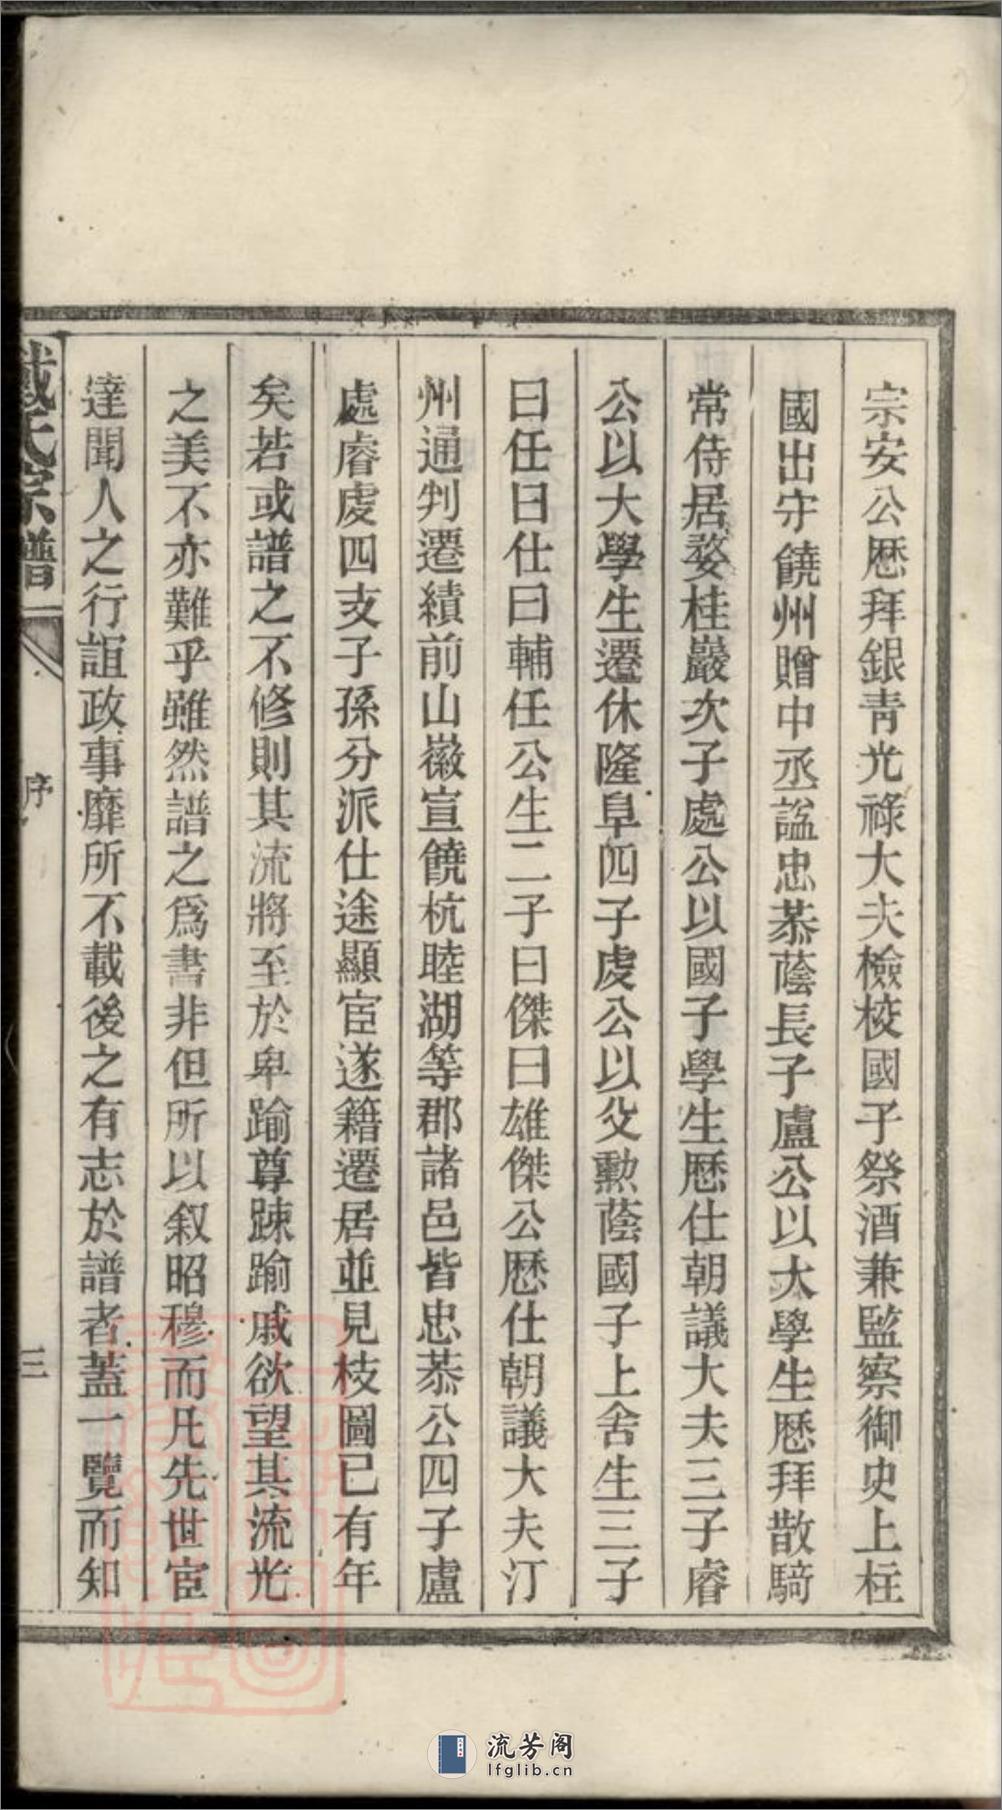 宗安公歷拜銀青光祿大夫檢校國子祭酒兼監察御史上柱
國出守饒州贈中丞諡忠恭蔭長子盧公以大學生歷拜散騎
常侍居婺桂巖次子處公以國子學生歷仕朝議大夫三子睿
公以大學生遷休隆阜四子虔公以父勳蔭國子上舍生三子
曰任曰仕曰輔任公生二子曰傑曰雄傑公歷仕朝議大夫汀
州通判遷績前山徽宣饒杭睦湖等郡諸邑皆忠恭公四子盧
處睿虔四支子孫分派仕途顯宦遂籍遷居並見枝圖已有年
矣若或譜之不修則其流將至於卑踰尊踈踰戚欲望其流光
之美不亦難乎雖然譜之爲書非但所以叙昭穆而凡先世宦
達聞人之行誼政事靡所不載後之有志於譜者蓋一覽而知
戴氏宗譜
序
三
流芳阁
lfglib.cn